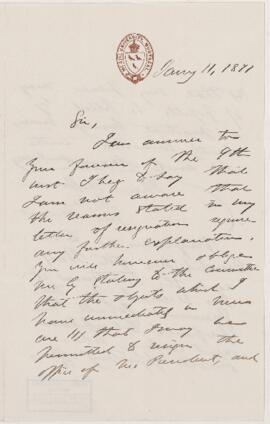 McGILL UNIVERSITY, MONTREAL
Jany 11, 1871
Sir,
In answer to
your favour of the 9th
inst I beg to say that
I am not aware that
the reasons stated in my
letter of resignation require
any further explanation.
You will however oblige
me by stating to the Committee
that the objects which I
have immediately in view
are (1) that I may be
permitted to resign the
office of Vice President, and